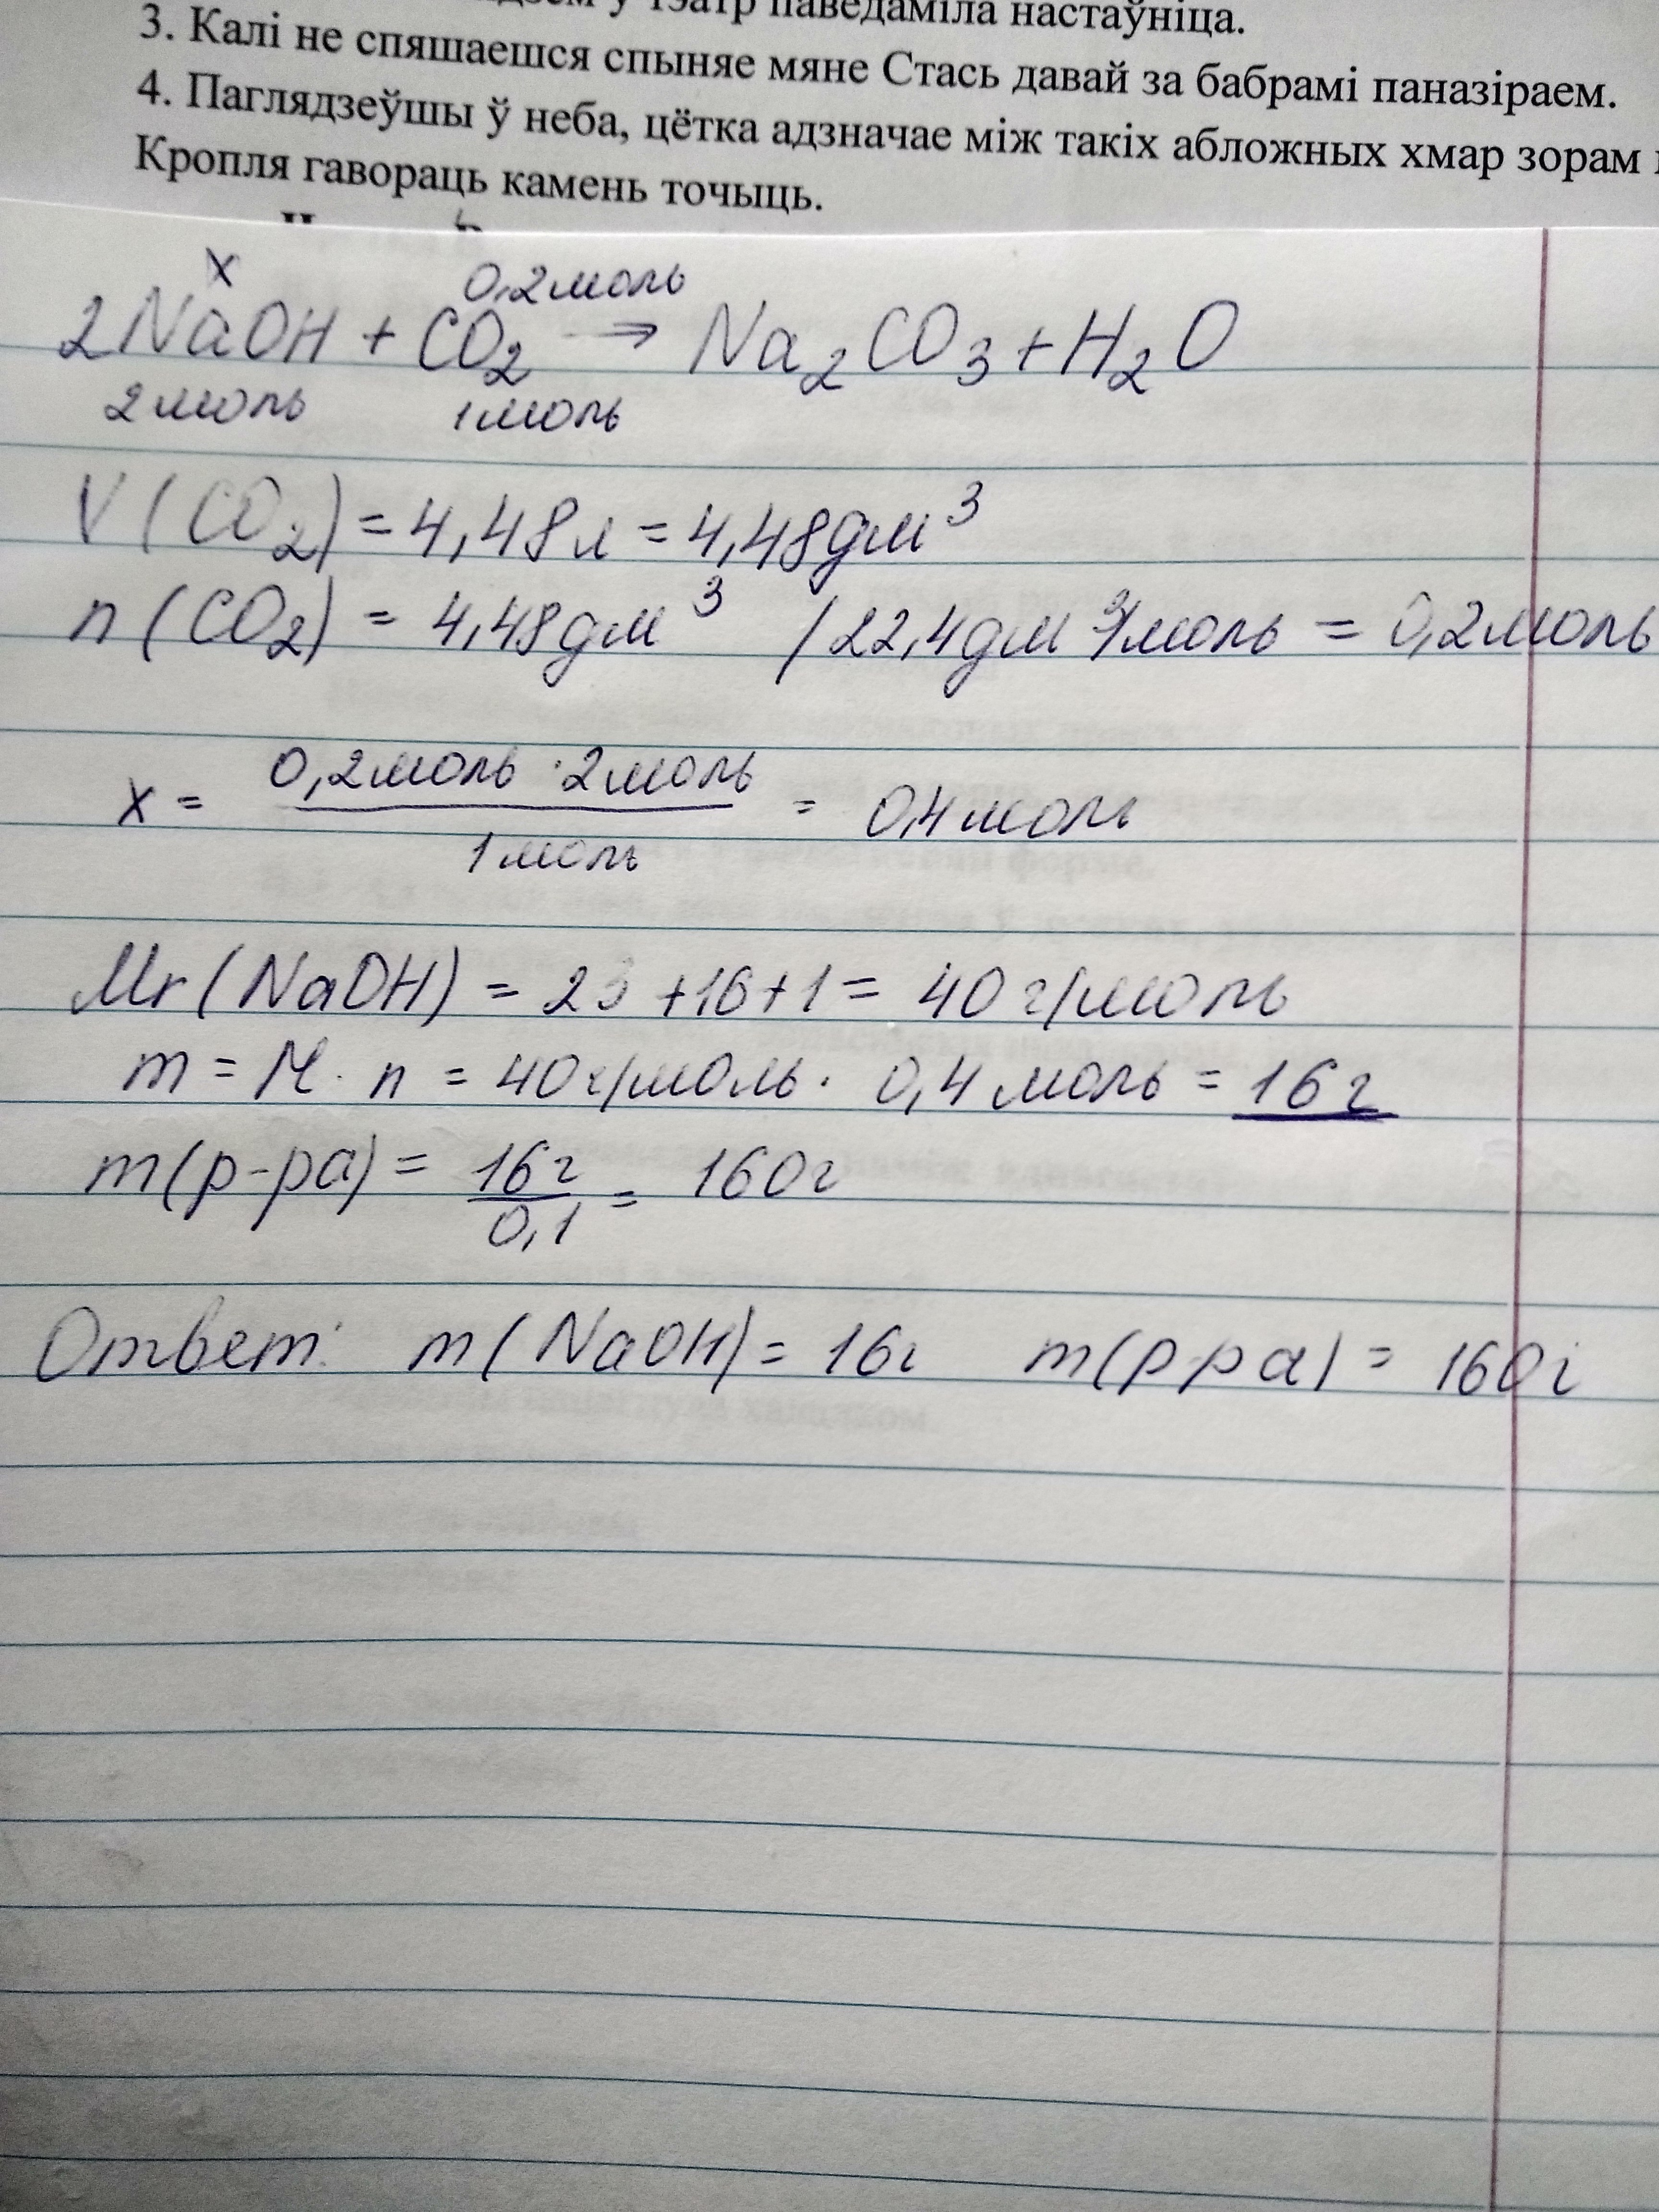 у тэатр паведаміла настаўніца.
3. Калі не спяшаешся спыняе мяне Стась давай за бабрамі паназіраем.
4. Паглядзеўшы ў неба, цётка адзначае між такіх абложных хмар зорам
Кропля гавораць камень точыць.
x 0,2моль
2NaOH + CO₂ → Na₂CO₃ + H₂O
2моль 1моль
V(CO₂) = 4,48л = 4,48дм³
n(CO₂) = 4,48дм³ / 22,4дм³/моль = 0,2моль
x = 0,2моль · 2моль / 1моль = 0,4моль
Mr(NaOH) = 23 + 16 + 1 = 40 г/моль
m = M · n = 40г/моль · 0,4 моль = 16г
m(р-ра) = 16г / 0,1 = 160г
Ответ: m(NaOH) = 16г m(р-ра) = 160г